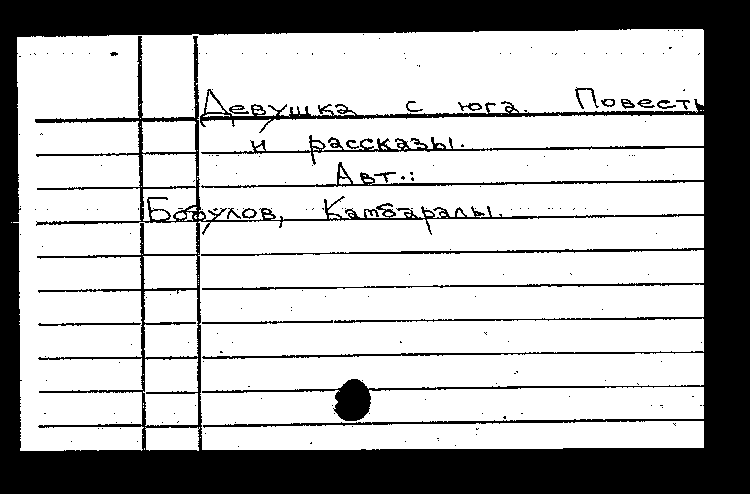 Девушка с юга. Повесть
и рассказы.
Авт.:
Бобулов, Камбаралы.